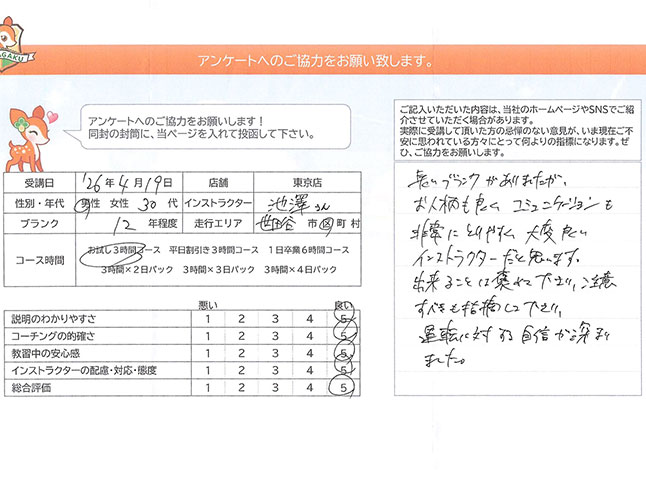 AGAKU
アンケートへのご協力をお願い致します。
アンケートへのご協力をお願いします！
同封の封筒に、当ページを入れて投函して下さい。
ご記入いただいた内容は、当社のホームページやSNSでご紹介させていただく場合があります。
実際に受講して頂いた方の忌憚のない意見が、いま現在ご不安に思われている方々にとって何よりの指標になります。ぜひ、ご協力をお願いします。
受講日 '26年4月19日 店舗 東京店
性別・年代 男性 女性 30代 インストラクター 池澤さん
ブランク 12年程度 走行エリア 世田谷 市区町村
コース時間 お試し3時間コース 平日割引き3時間コース 1日卒業6時間コース
3時間×2日パック 3時間×3日パック 3時間×4日パック
悪い 良い
説明のわかりやすさ 1 2 3 4 5
コーチングの的確さ 1 2 3 4 5
教習中の安心感 1 2 3 4 5
インストラクターの配慮・対応・態度 1 2 3 4 5
総合評価 1 2 3 4 5
長いブランクがありましたが、
お人柄も良く コミュニケーションも
非常にとりやすく 大変良い
インストラクターだと思います。
出来ることは褒めて下さり、注意
すべきも指摘して下さり、
運転に対する自信が深まり
ました。